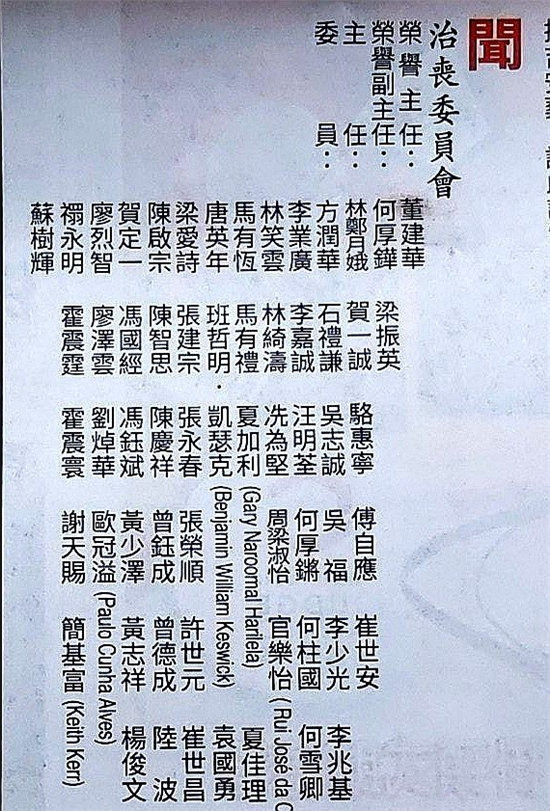 聞
治喪委員會
榮譽主任：董建華
榮譽副主任：何厚鏵 梁振英
主任：林鄭月娥 賀一誠 駱惠寧 傅自應 崔世安
委員：方潤華 石禮謙 吳志誠 吳福 李少光 李兆基
李業廣 李嘉誠 汪明荃 何厚鏘 何柱國 何雪卿
林笑雲 林綺濤 冼為堅 周梁淑怡 官樂怡 (Rui José da
馬有恆 馬有禮 夏加利 (Gary Naroomal Harilela) 夏佳理
唐英年 班哲明・凱瑟克 (Benjamin William Keswick) 袁國勇
梁愛詩 張建宗 張永春 張榮順 許世元 崔世昌
陳啟宗 陳智思 陳慶祥 曾鈺成 曾德成 陸波
賀定一 馮國經 馮鈺斌 黃少澤 黃志祥 楊俊文
廖烈智 廖澤雲 劉焯華 歐冠溢 (Paulo Cunha Alves)
禤永明 霍震霆 霍震寰 謝天賜 簡基富 (Keith Kerr)
蘇樹輝